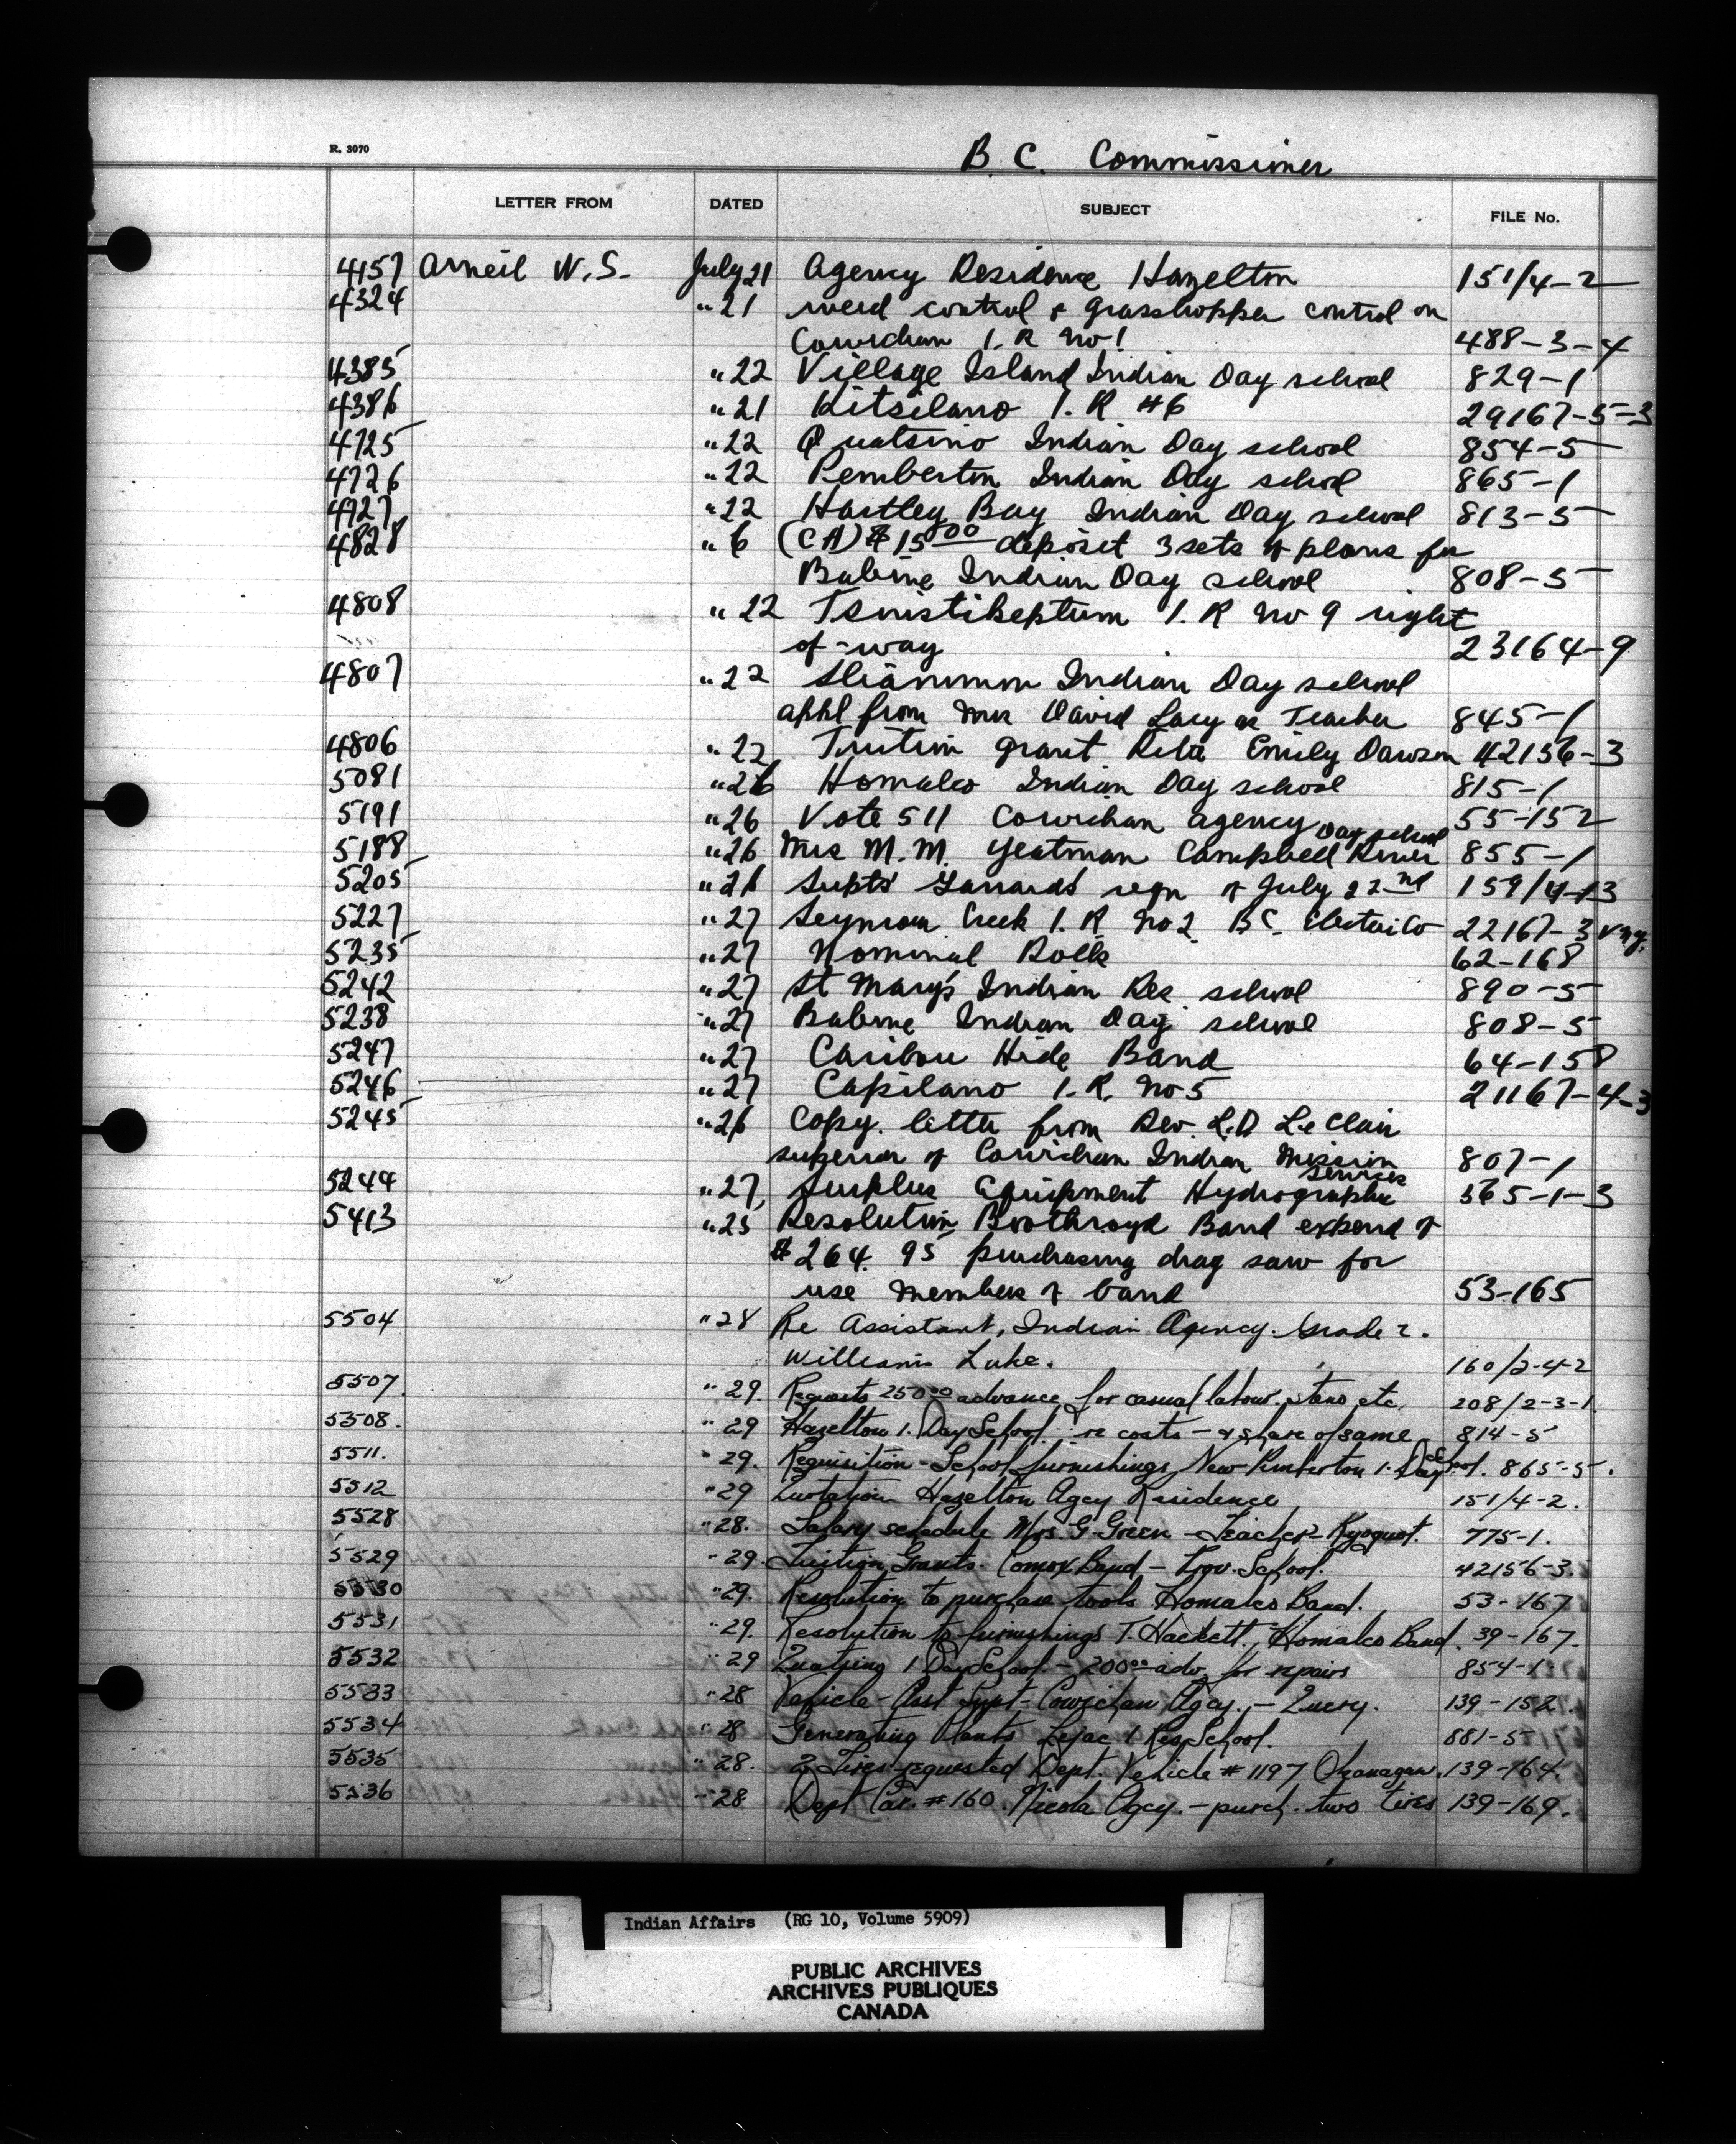 R. 3070
B. C. Commissioner
LETTER FROM DATED SUBJECT FILE No.
4157 Arneil W.S. July 21 Agency Residence Hazelton 151/4-2
4324 " 21 weed control & grasshopper control on
Cowichan I. R No 1 488-3-4
4385 " 22 Village Island Indian Day school 829-1
4386 " 21 Kitsilano I. R #6 29167-5-3
4725 " 22 Quatsino Indian Day school 854-5
4726 " 22 Pemberton Indian Day school 865-1
4727 " 22 Hartley Bay Indian Day school 813-5
4828 " 6 (CA) $15 00 deposit 3 sets of plans for
Babine Indian Day school 808-5
4808 " 22 Tsnistikeptum I. R No 9 right
of-way 23164-9
4807 " 22 Sliammon Indian Day school
appl from Mrs David Lacy as Teacher 845-1
4806 " 22 Tuition grant Rita Emily Dawson 42156-3
5081 " 26 Homalco Indian Day school 815-1
5191 " 26 Vote 511 Cowichan agency 55-152
5188 " 26 Mrs M. M. Yeatman Campbell River Day school 855-1
5205 " 26 Supts' Garrards reqn of July 22nd 159/4-13
5227 " 27 Seymour Creek I. R No 2 BC. Electric Co 22167-3
5235 " 27 Nominal Rolls 62-168
5242 " 27 St Mary's Indian Res school 890-5
5238 " 27 Babine Indian Day school 808-5
5247 " 27 Caribou Hide Band 64-158
5246 " 27 Capilano I. R. No 5 21167-4-3
5245 " 26 Copy. letter from Rev. L.D Le Clair
superior of Cowichan Indian Mission 807-1
5244 " 27 Surplus Equipment Hydrographic Services 365-1-3
5413 " 25 Resolution Boothroyd Band expend of
$264. 95 purchasing drag saw for
use members of band 53-165
5504 " 28 Re Assistant, Indian Agency. Grade 2.
Williams Lake. 160/2-4-2
5507 " 29. Requests 250 00 advance for casual labour etc. 208/2-3-1.
5508. " 29 Hazelton I. Day School re costs - & share of same 814-5
5511. " 29. Requisition - School furnishings New Pemberton I. Day School. 865-5.
5512 " 29 Quotation Hazelton Agcy Residence 151/4-2.
5528 " 28. Salary schedule Mrs G. Green - Teacher - Kyuquot. 775-1.
5529 " 29. Tuition Grants. Comox Band - Prov. School. 42156-3.
5530 " 29. Resolution to purchase tools Homalco Band. 53-167
5531 " 29. Resolution to furnishings T. Hackett. Homalco Band. 39-167.
5532 " 29 Quatsino I Day School - 200 00 adv. for repairs 854-1
5533 " 28 Vehicle - Asst Supt - Cowichan Agcy. - Query. 139-152
5534 " 28 Generating Plants Lejac I Res School. 881-5
5535 " 28. 2 Tires requested Dept. Vehicle # 1197 Okanagan. 139-164.
5536 " 28 Dept Car. # 160. Nicola Agcy. - purch. two tires 139-169.
Indian Affairs (RG 10, Volume 5909)
PUBLIC ARCHIVES
ARCHIVES PUBLIQUES
CANADA